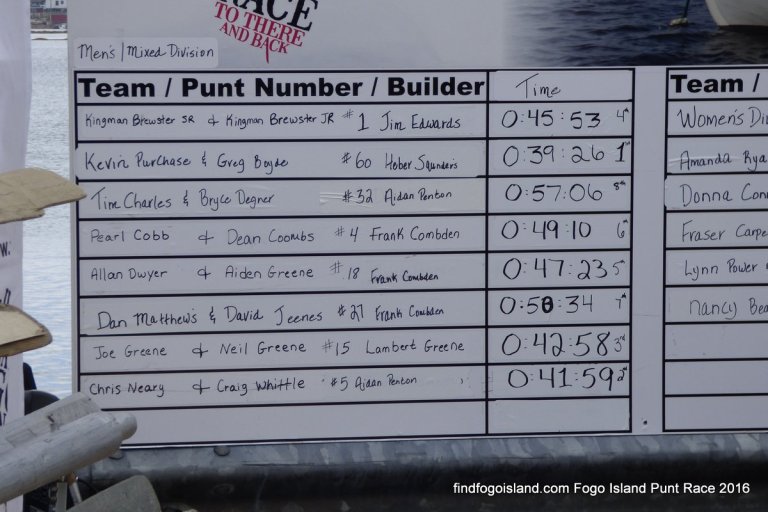 RACE
TO THERE
AND BACK
Men's / Mixed Division
Team / Punt Number / Builder Time
Kingman Brewster SR & Kingman Brewster JR #1 Jim Edwards 0:45:53 4th
Kevin Purchase & Greg Boyde #60 Heber Saunders 0:39:26 1st
Tim Charles & Bryce Degner #32 Aidan Penton 0:57:06 8th
Pearl Cobb & Dean Coombs #4 Frank Combden 0:49:10 6th
Allan Dwyer & Aiden Greene #18 Frank Combden 0:47:23 5th
Dan Matthews & David Jeenes #27 Frank Combden 0:50:34 7th
Joe Greene & Neil Greene #15 Lambert Greene 0:42:58 3rd
Chris Neary & Craig Whittle #5 Aidan Penton 0:41:59 2nd
Team /
Women's Di
Amanda Rya
Donna Con
Fraser Carpe
Lynn Power
Nancy Bea
findfogoisland.com Fogo Island Punt Race 2016